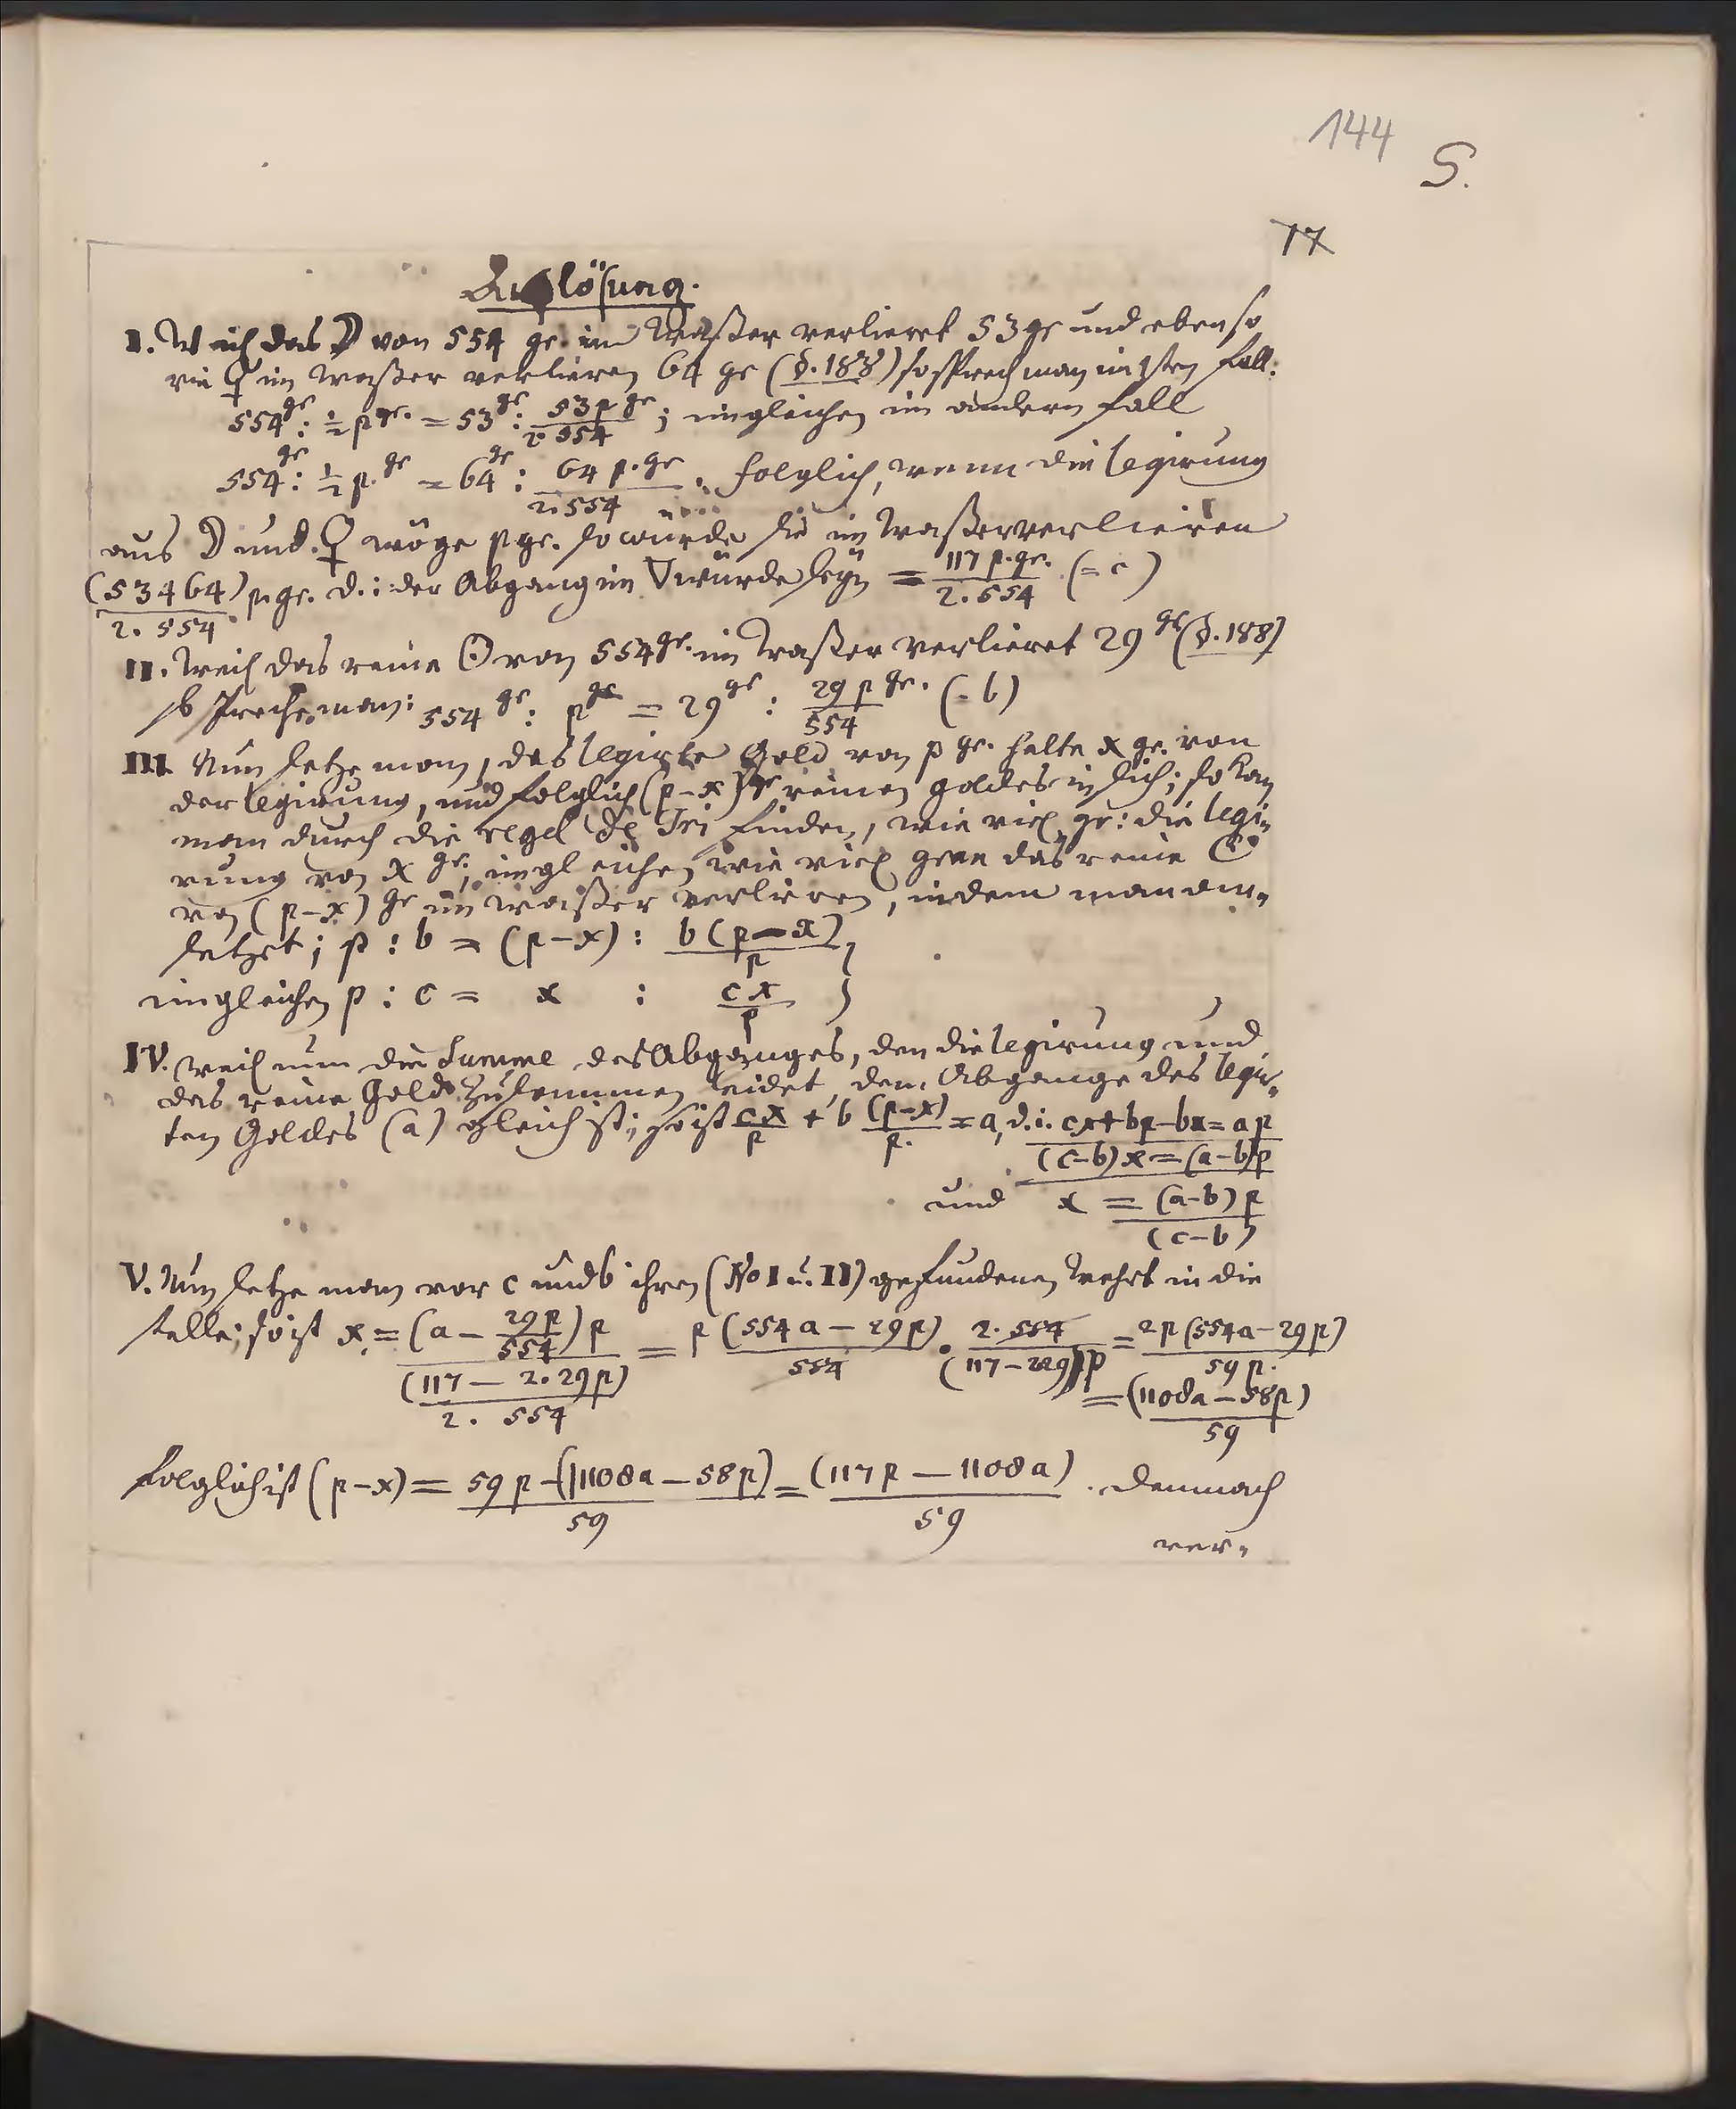 144 S.
17
Auflösung.
I. Weil das ☽ von 554 gr. im Waßer verlieret 53 gr und ebenso
wie ♀ im Waßer verlieren 64 gr (§.188) so sprech man im 1sten Fall:
554 gr : ½ p gr. = 53 gr : 53 p gr / 2 554 ; imgleichen im andern Fall
554 gr : ½ p. gr = 64 gr : 64 p. gr / 2. 554 . Folglich, wenn die Legirung
aus ☽ und ♀ wöge p gr. so würde sie im Waßer verlieren
(53+64) p gr. / 2. 554 d. i: der Abgang im ▽ würde seyn = 117 p. gr. / 2. 554 (= c)
II. Weil das reine ☉ von 554 gr. im Waßer verlieret 29 gr (§.188)
so spreche man: 554 gr : p gr = 29 gr : 29 p gr. / 554 (= b)
III Nun setze man, das legirte Gold von p gr. halte x gr. von
der Legirung, und folglich (p-x) gr reinen Goldes in sich; so kan
man durch die regel de Tri finden, wie viel gr: die Legi-
rung von x gr; imgleichen, wie viel gran das reine ☉
von (p-x) gr im waßer verlieren, indem man an-
setzet; p : b = (p-x) : b (p-x) / p ;
imgleichen p : c = x : cx / p ;
IV. weil nun die Summe des Abganges, den die Legirung und
das reine Gold zusammen leidet, dem Abgange des legir-
ten Goldes (a) gleich ist; so ist cx / p + b (p-x) / p. = a, d. i. cx+bp-bx = ap
(c-b) x = (a-b) p
und x = (a-b) p / (c-b)
V. Nun setze man vor c und b ihren (No I u. II) gefundenen Wehrt in die
stelle; so ist x = (a - 29p / 554) p / (117 - 2. 29 p) / 2. 554 = p (554 a - 29 p) / 554 . 2. 554 / (117 - 2 29) p = 2p (554a - 29 p) / 59 p.
= (1108a - 58p) / 59
Folglich ist (p-x) = 59 p - (1108a - 58p) / 59 = (117 p - 1108a) / 59 . Demnach
ver-